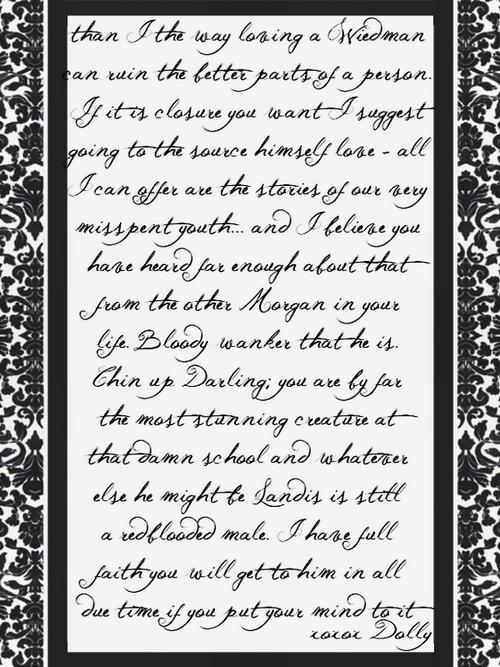 than I the way loving a Wiedman
can ruin the better parts of a person.
If it is closure you want I suggest
going to the source himself love - all
I can offer are the stories of our very
misspent youth... and I believe you
have heard far enough about that
from the other Morgan in your
life. Bloody wanker that he is.
Chin up Darling; you are by far
the most stunning creature at
that damn school and whatever
else he might be Landis is still
a redblooded male. I have full
faith you will get to him in all
due time if you put your mind to it
xoxox Dolly